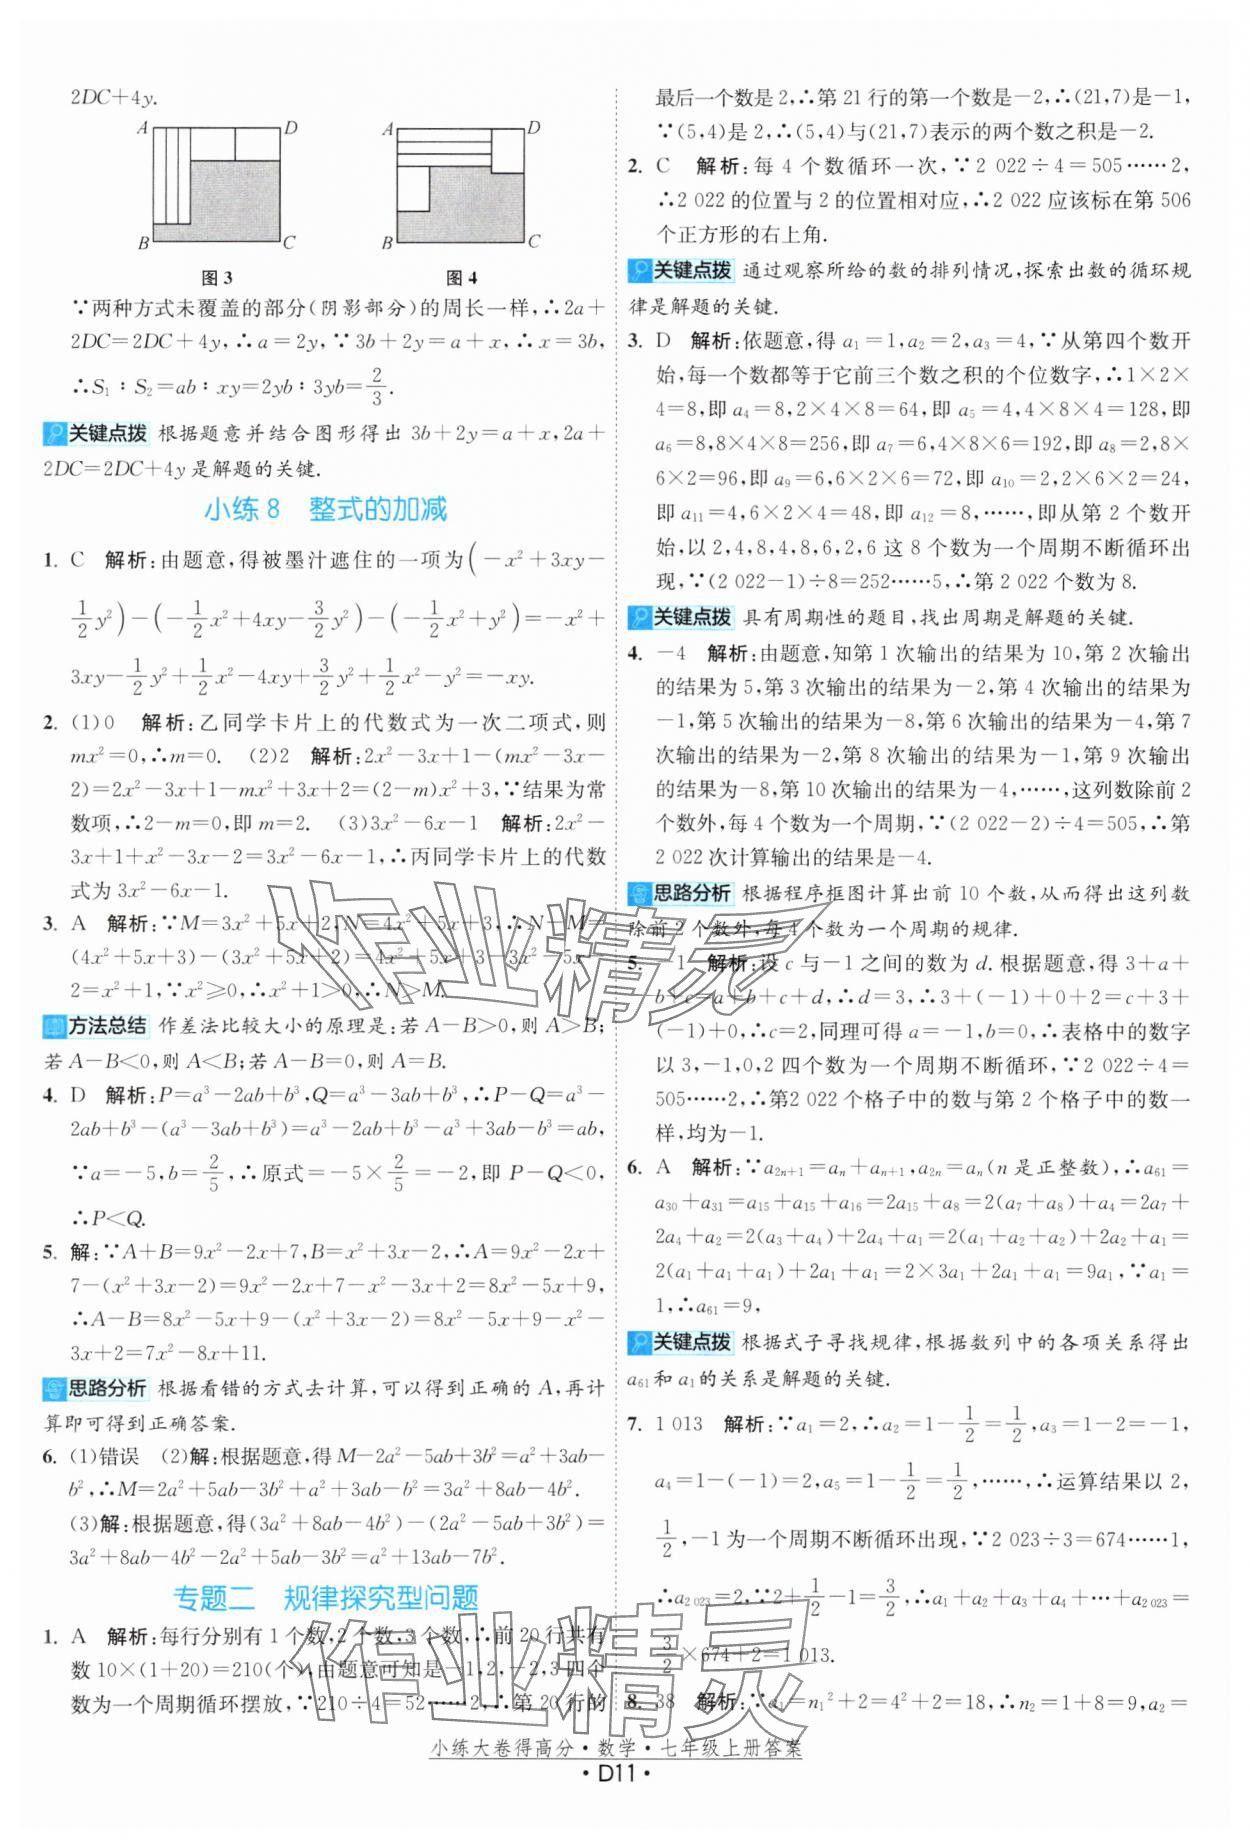 2DC+4y.
A D B C
A D B C
图3 图4
∵两种方式未覆盖的部分(阴影部分)的周长一样,∴2a+
2DC=2DC+4y,∴a=2y,∵3b+2y=a+x,∴x=3b,
∴S₁∶S₂=ab∶xy=2yb∶3yb=2/3.
关键点拨 根据题意并结合图形得出 3b+2y=a+x,2a+
2DC=2DC+4y是解题的关键.
小练8 整式的加减
1. C 解析:由题意,得被墨汁遮住的一项为(-x²+3xy-
1/2y²)-(-1/2x²+4xy-3/2y²)-(-1/2x²+y²)=-x²+
3xy-1/2y²+1/2x²-4xy+3/2y²+1/2x²-y²=-xy.
2. (1)0 解析:乙同学卡片上的代数式为一次二项式,则
mx²=0,∴m=0. (2)2 解析:2x²-3x+1-(mx²-3x-
2)=2x²-3x+1-mx²+3x+2=(2-m)x²+3,∵结果为常
数项,∴2-m=0,即m=2. (3)3x²-6x-1 解析:2x²-
3x+1+x²-3x-2=3x²-6x-1,∴丙同学卡片上的代数
式为3x²-6x-1.
3. A 解析:∵M=3x²+5x+2,N=4x²+5x+3,∴N-M=
(4x²+5x+3)-(3x²+5x+2)=4x²+5x+3-3x²-5x-
2=x²+1,∵x²≥0,∴x²+1>0,∴N>M.
方法总结 作差法比较大小的原理是:若A-B>0,则A>B;
若A-B<0,则A<B;若A-B=0,则A=B.
4. D 解析:P=a³-2ab+b³,Q=a³-3ab+b³,∴P-Q=a³-
2ab+b³-(a³-3ab+b³)=a³-2ab+b³-a³+3ab-b³=ab,
∵a=-5,b=2/5,∴原式=-5×2/5=-2,即P-Q<0,
∴P<Q.
5. 解:∵A+B=9x²-2x+7,B=x²+3x-2,∴A=9x²-2x+
7-(x²+3x-2)=9x²-2x+7-x²-3x+2=8x²-5x+9,
∴A-B=8x²-5x+9-(x²+3x-2)=8x²-5x+9-x²-
3x+2=7x²-8x+11.
思路分析 根据看错的方式去计算,可以得到正确的A,再计
算即可得到正确答案.
6. (1)错误 (2)解:根据题意,得M-2a²-5ab+3b²=a²+3ab-
b²,∴M=2a²+5ab-3b²+a²+3ab-b²=3a²+8ab-4b².
(3)解:根据题意,得(3a²+8ab-4b²)-(2a²-5ab+3b²)=
3a²+8ab-4b²-2a²+5ab-3b²=a²+13ab-7b².
专题二 规律探究型问题
1. A 解析:每行分别有1个数,2个数,3个数,∴前20行共有
数10×(1+20)=210(个),由题意可知是-1,2,-2,3四个
数为一个周期循环摆放,∵210÷4=52……2,∴第20行的
最后一个数是2,∴第21行的第一个数是-2,∴(21,7)是-1,
∵(5,4)是2,∴(5,4)与(21,7)表示的两个数之积是-2.
2. C 解析:每4个数循环一次,∵2 022÷4=505……2,
∴2 022的位置与2的位置相对应,∴2 022应该标在第506
个正方形的右上角.
关键点拨 通过观察所给的数的排列情况,探索出数的循环规
律是解题的关键.
3. D 解析:依题意,得a₁=1,a₂=2,a₃=4,∵从第四个数开
始,每一个数都等于它前三个数之积的个位数字,∴1×2×
4=8,即a₄=8,2×4×8=64,即a₅=4,4×8×4=128,即
a₆=8,8×4×8=256,即a₇=6,4×8×6=192,即a₈=2,8×
6×2=96,即a₉=6,6×2×6=72,即a₁₀=2,2×6×2=24,
即a₁₁=4,6×2×4=48,即a₁₂=8,……,即从第2个数开
始,以2,4,8,4,8,6,2,6这8个数为一个周期不断循环出
现,∵(2 022-1)÷8=252……5,∴第2 022个数为8.
关键点拨 具有周期性的题目,找出周期是解题的关键.
4. -4 解析:由题意,知第1次输出的结果为10,第2次输出
的结果为5,第3次输出的结果为-2,第4次输出的结果为
-1,第5次输出的结果为-8,第6次输出的结果为-4,第7
次输出的结果为-2,第8次输出的结果为-1,第9次输出
的结果为-8,第10次输出的结果为-4,……,这列数除前2
个数外,每4个数为一个周期,∵(2 022-2)÷4=505,∴第
2 022次计算输出的结果是-4.
思路分析 根据程序框图计算出前10个数,从而得出这列数
除前2个数外,每4个数为一个周期的规律.
5. -1 解析:设c与-1之间的数为d.根据题意,得3+a+
b+c=a+b+c+d,∴d=3,∴3+(-1)+0+2=c+3+
(-1)+0,∴c=2,同理可得a=-1,b=0,∴表格中的数字
以3,-1,0,2四个数为一个周期不断循环,∵2 022÷4=
505……2,∴第2 022个格子中的数与第2个格子中的数一
样,均为-1.
6. A 解析:∵a₂ₙ₊₁=aₙ+aₙ₊₁,a₂ₙ=aₙ(n是正整数),∴a₆₁=
a₃₀+a₃₁=a₁₅+a₁₅+a₁₆=2a₁₅+a₈=2(a₇+a₈)+a₄=2a₇+
2a₄+a₂=2(a₃+a₄)+2a₄+a₁=2(a₁+a₂+a₂)+2a₂+a₁=
2(a₁+a₁+a₁)+2a₁+a₁=2×3a₁+2a₁+a₁=9a₁,∵a₁=
1,∴a₆₁=9,
关键点拨 根据式子寻找规律,根据数列中的各项关系得出
a₆₁和a₁的关系是解题的关键.
7. 1 013 解析:∵a₁=2,∴a₂=1-1/2=1/2,a₃=1-2=-1,
a₄=1-(-1)=2,a₅=1-1/2=1/2,……,∴运算结果以2,
1/2,-1为一个周期不断循环出现,∵2 023÷3=674……1,
∴a₂ ₀₂₃=2,∵2+1/2-1=3/2,∴a₁+a₂+a₃+a₄+…+a₂ ₀₂₃=
3/2×674+2=1 013.
8. 38 解析:∵a₁=n₁²+2=4²+2=18,∴n₂=1+8=9,a₂=
作业精灵
作业精灵
小练大卷得高分·数学·七年级上册答案
·D11·